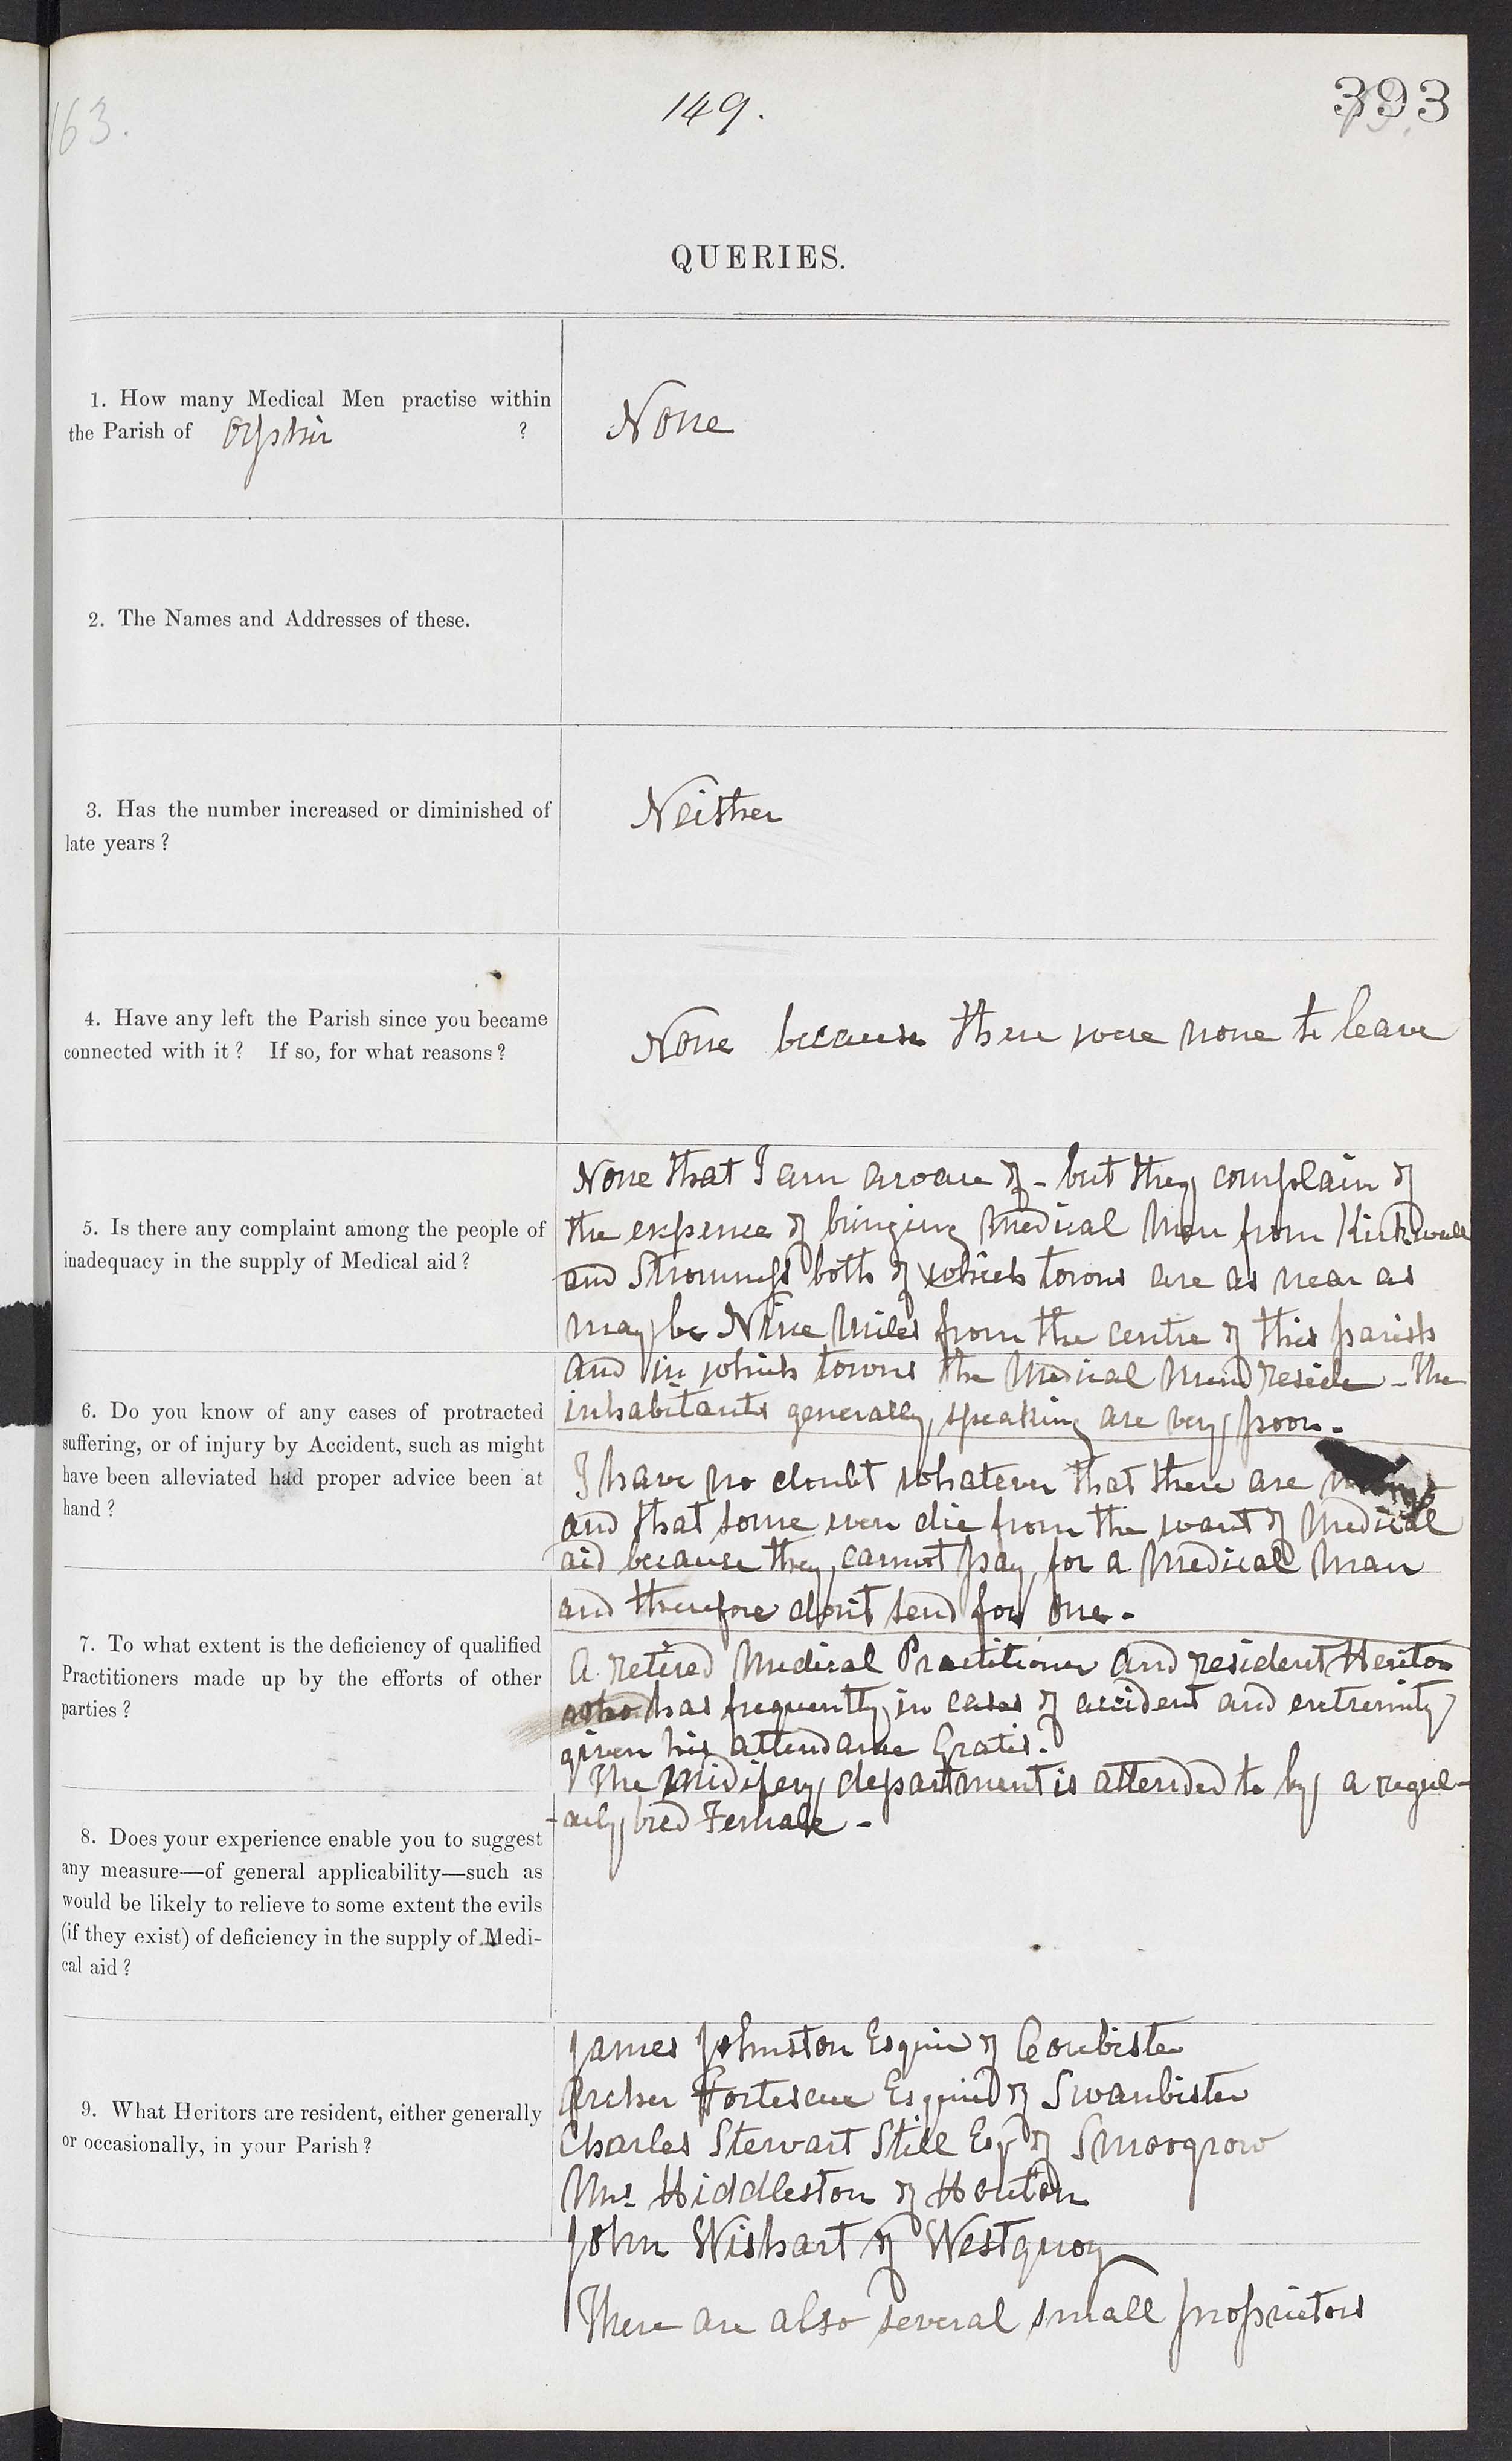 163.
149.
393
QUERIES.
1. How many Medical Men practise within
the Parish of Orphir ?
None
2. The Names and Addresses of these.
3. Has the number increased or diminished of
late years ?
Neither
4. Have any left the Parish since you became
connected with it ? If so, for what reasons ?
None because there were none to leave
5. Is there any complaint among the people of
inadequacy in the supply of Medical aid ?
None that I am aware of - but they complain of
the expence of bringing Medical Men from Kirkwall
and Stromness both of which towns are as near as
may be Nine Miles from the centre of this parish
and in which towns the Medical Men reside - The
inhabitants generally speaking are very poor.
6. Do you know of any cases of protracted
suffering, or of injury by Accident, such as might
have been alleviated had proper advice been at
hand ?
I have no doubt whatever that there are
and that some even die from the want of Medical
aid because they cannot pay for a Medical Man
and therefore don't send for one.
7. To what extent is the deficiency of qualified
Practitioners made up by the efforts of other
parties ?
A retired Medical Practitioner and resident Heritor
has frequently in cases of accident and extremity
given his attendance Gratis.
The Midifery department is attended to by a regul-
-arly bred Female -
8. Does your experience enable you to suggest
any measure—of general applicability—such as
would be likely to relieve to some extent the evils
(if they exist) of deficiency in the supply of Medi-
cal aid ?
9. What Heritors are resident, either generally
or occasionally, in your Parish ?
James Johnston Esquire of Coubister
Archer Fortescue Esquire of Swanbister
Charles Stewart Still Esqr of Smoogrow
Mrs Hiddleston of Houton
John Wishart of Westquoy
There are also several small proprietors